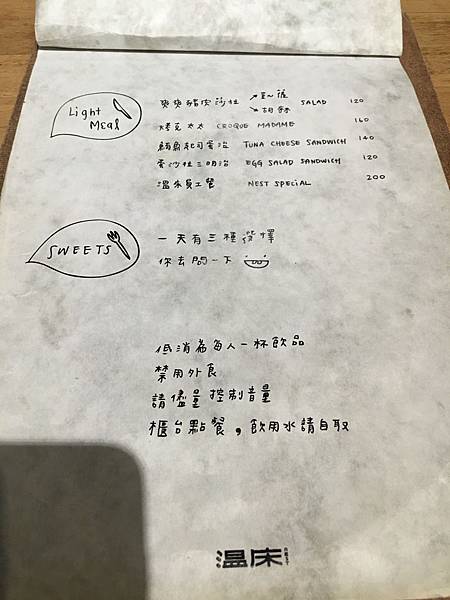 Light
Meal
爽爽豬肉沙拉 SALAD 120
胡麻
烤克太太 CROQUE MADAME 160
鮪魚起司三明治 TUNA CHEESE SANDWICH 140
蛋沙拉三明治 EGG SALAD SANDWICH 120
溫床員工餐 NEST SPECIAL 200
SWEETS
一天有三種選擇
你去問一下
低消為每人一杯飲品
禁用外食
請儘量控制音量
櫃台點餐,飲用水請自取
溫床